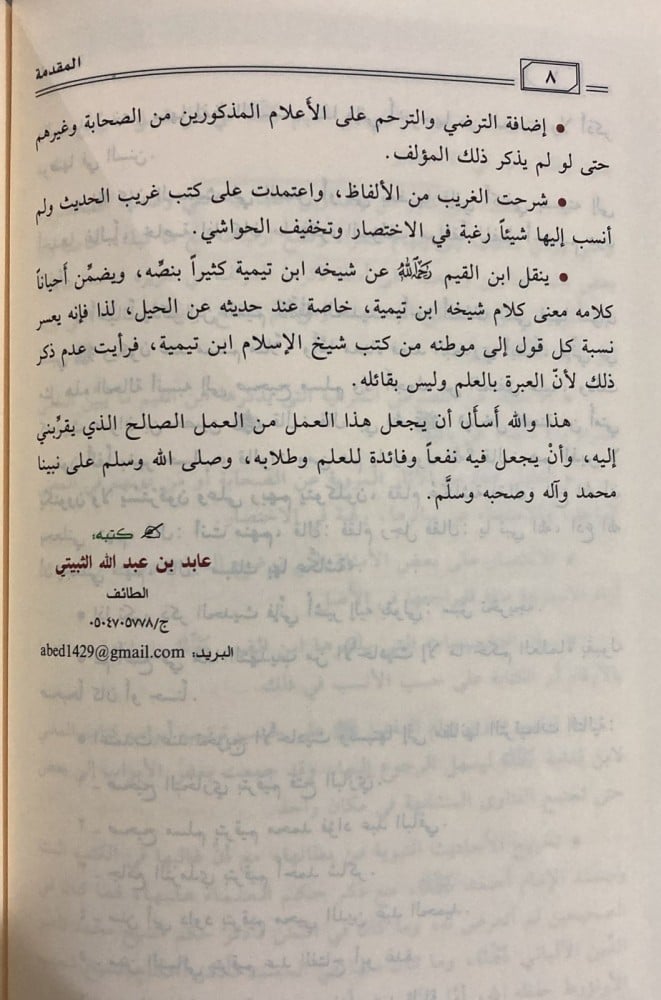 ٨
المقدمة
• إضافة الترضي والترحم على الأَعلام المذكورين من الصحابة وغيرهم
حتى لو لم يذكر ذلك المؤلف.
• شرحت الغريب من الألفاظ، واعتمدت على كتب غريب الحديث ولم
أنسب إليها شيئاً رغبة في الاختصار وتخفيف الحواشي.
• ينقل ابن القيم رَحِمَهُ اللهُ عن شيخه ابن تيمية كثيراً بنصِّه، ويضمِّن أَحياناً
كلامه معنى كلام شيخه ابن تيمية، خاصة عند حديثه عن الحيل، لذا فإنه يعسر
نسبة كل قول إلى موطنه من كتب شيخ الإسلام ابن تيمية، فرأيت عدم ذكر
ذلك لأنّ العبرة بالعلم وليس بقائله.
هذا والله أَسأل أن يجعل هذا العمل من العمل الصالح الذي يقرِّبني
إليه، وأنْ يجعل فيه نفعاً وفائدة للعلم وطلابه، وصلى الله وسلم على نبينا
محمد وآله وصحبه وسلَّم.
كتبه:
عابد بن عبد الله الثبيتي
الطائف
ج/٠٥٠٤٧٠٥٧٧٨
البريد: abed1429@gmail.com